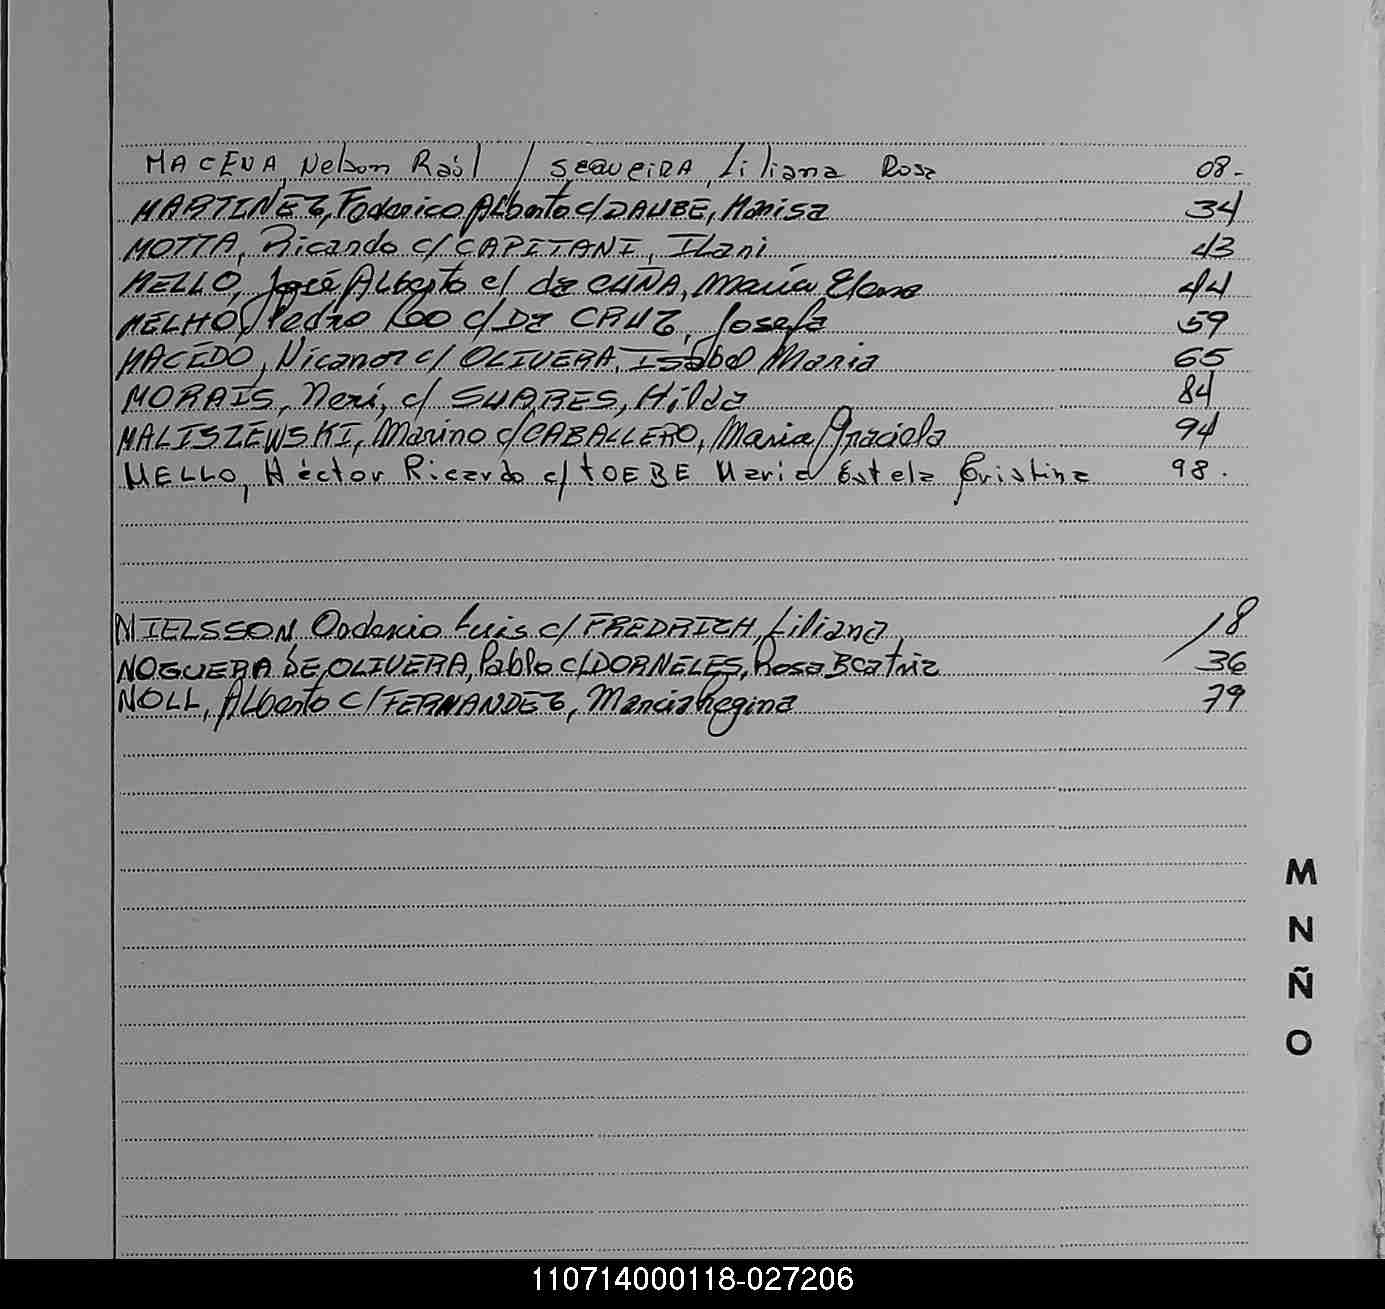 MACENA, Nelson Raúl / SEQUEIRA, Liliana Rosa 08-
MARTINEZ, Federico Alberto c/ DAUBE, Marisa 34
MOTTA, Ricardo c/ CAPITANI, Ilani 43
MELLO, José Alberto c/ da CUÑA, María Elena 44
MELHO, Pedro Roo c/ Da CRUZ, Josefa 59
MACEDO, Nicanor c/ OLIVERA, Isabel Maria 65
MORAIS, Neri, c/ SUARES, Hilda 84
MALISZEWSKI, Marino c/ CABALLERO, Maria Graciela 94
MELLO, Héctor Ricardo c/ tOEBE Maria Estela Cristina 98.
NIELSSON Luis c/ FREDRICH, Liliana, 18
NOGUERA DE OLIVERA, Pablo c/ DORNELES, Rosa Beatriz 36
NOLL, Alberto c/ FERNANDEZ, Marcia Regina 79
M
N
Ñ
O
110714000118-027206